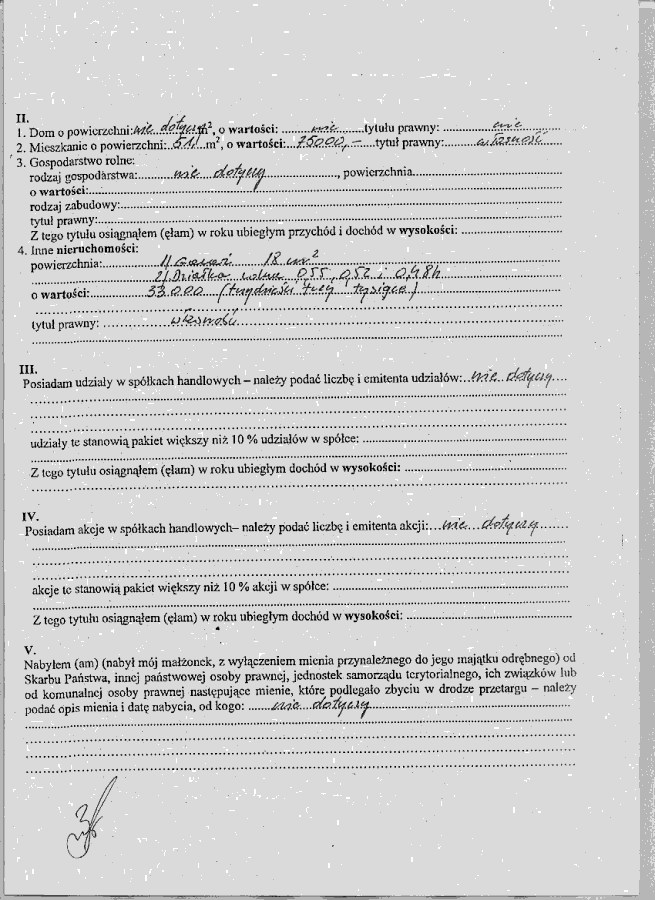 II.
1. Dom o powierzchni: nie dotyczy m², o wartości: ........nie........tytułu prawny: ........nie........
2. Mieszkanie o powierzchni: ..51.. m², o wartości: ..75000,-....tytuł prawny: ........własność
3. Gospodarstwo rolne:
rodzaj gospodarstwa: ........nie dotyczy................, powierzchnia................
o wartości:................
rodzaj zabudowy:................
tytuł prawny:................
Z tego tytułu osiągnąłem (ęłam) w roku ubiegłym przychód i dochód w wysokości: ................
4. Inne nieruchomości:
powierzchnia: 1) Garaż 18 m²
2) Działka rolna 0,55, 0,52 i 0,48 h
o wartości: 33.000 (trzydzieści trzy tysiące)
................
tytuł prawny: ........własność
................
III.
Posiadam udziały w spółkach handlowych – należy podać liczbę i emitenta udziałów: ..nie dotyczy....
................
................
................
udziały te stanowią pakiet większy niż 10 % udziałów w spółce: ................
................
Z tego tytułu osiągnąłem (ęłam) w roku ubiegłym dochód w wysokości: ................
................
IV.
Posiadam akcje w spółkach handlowych– należy podać liczbę i emitenta akcji: ...nie dotyczy.......
................
................
................
akcje te stanowią pakiet większy niż 10 % akcji w spółce: ................
................
Z tego tytułu osiągnąłem (ęłam) w roku ubiegłym dochód w wysokości: ................
V.
Nabyłem (am) (nabył mój małżonek, z wyłączeniem mienia przynależnego do jego majątku odrębnego) od
Skarbu Państwa, innej państwowej osoby prawnej, jednostek samorządu terytorialnego, ich związków lub
od komunalnej osoby prawnej następujące mienie, które podlegało zbyciu w drodze przetargu – należy
podać opis mienia i datę nabycia, od kogo: ........nie dotyczy................
................
................
................
................